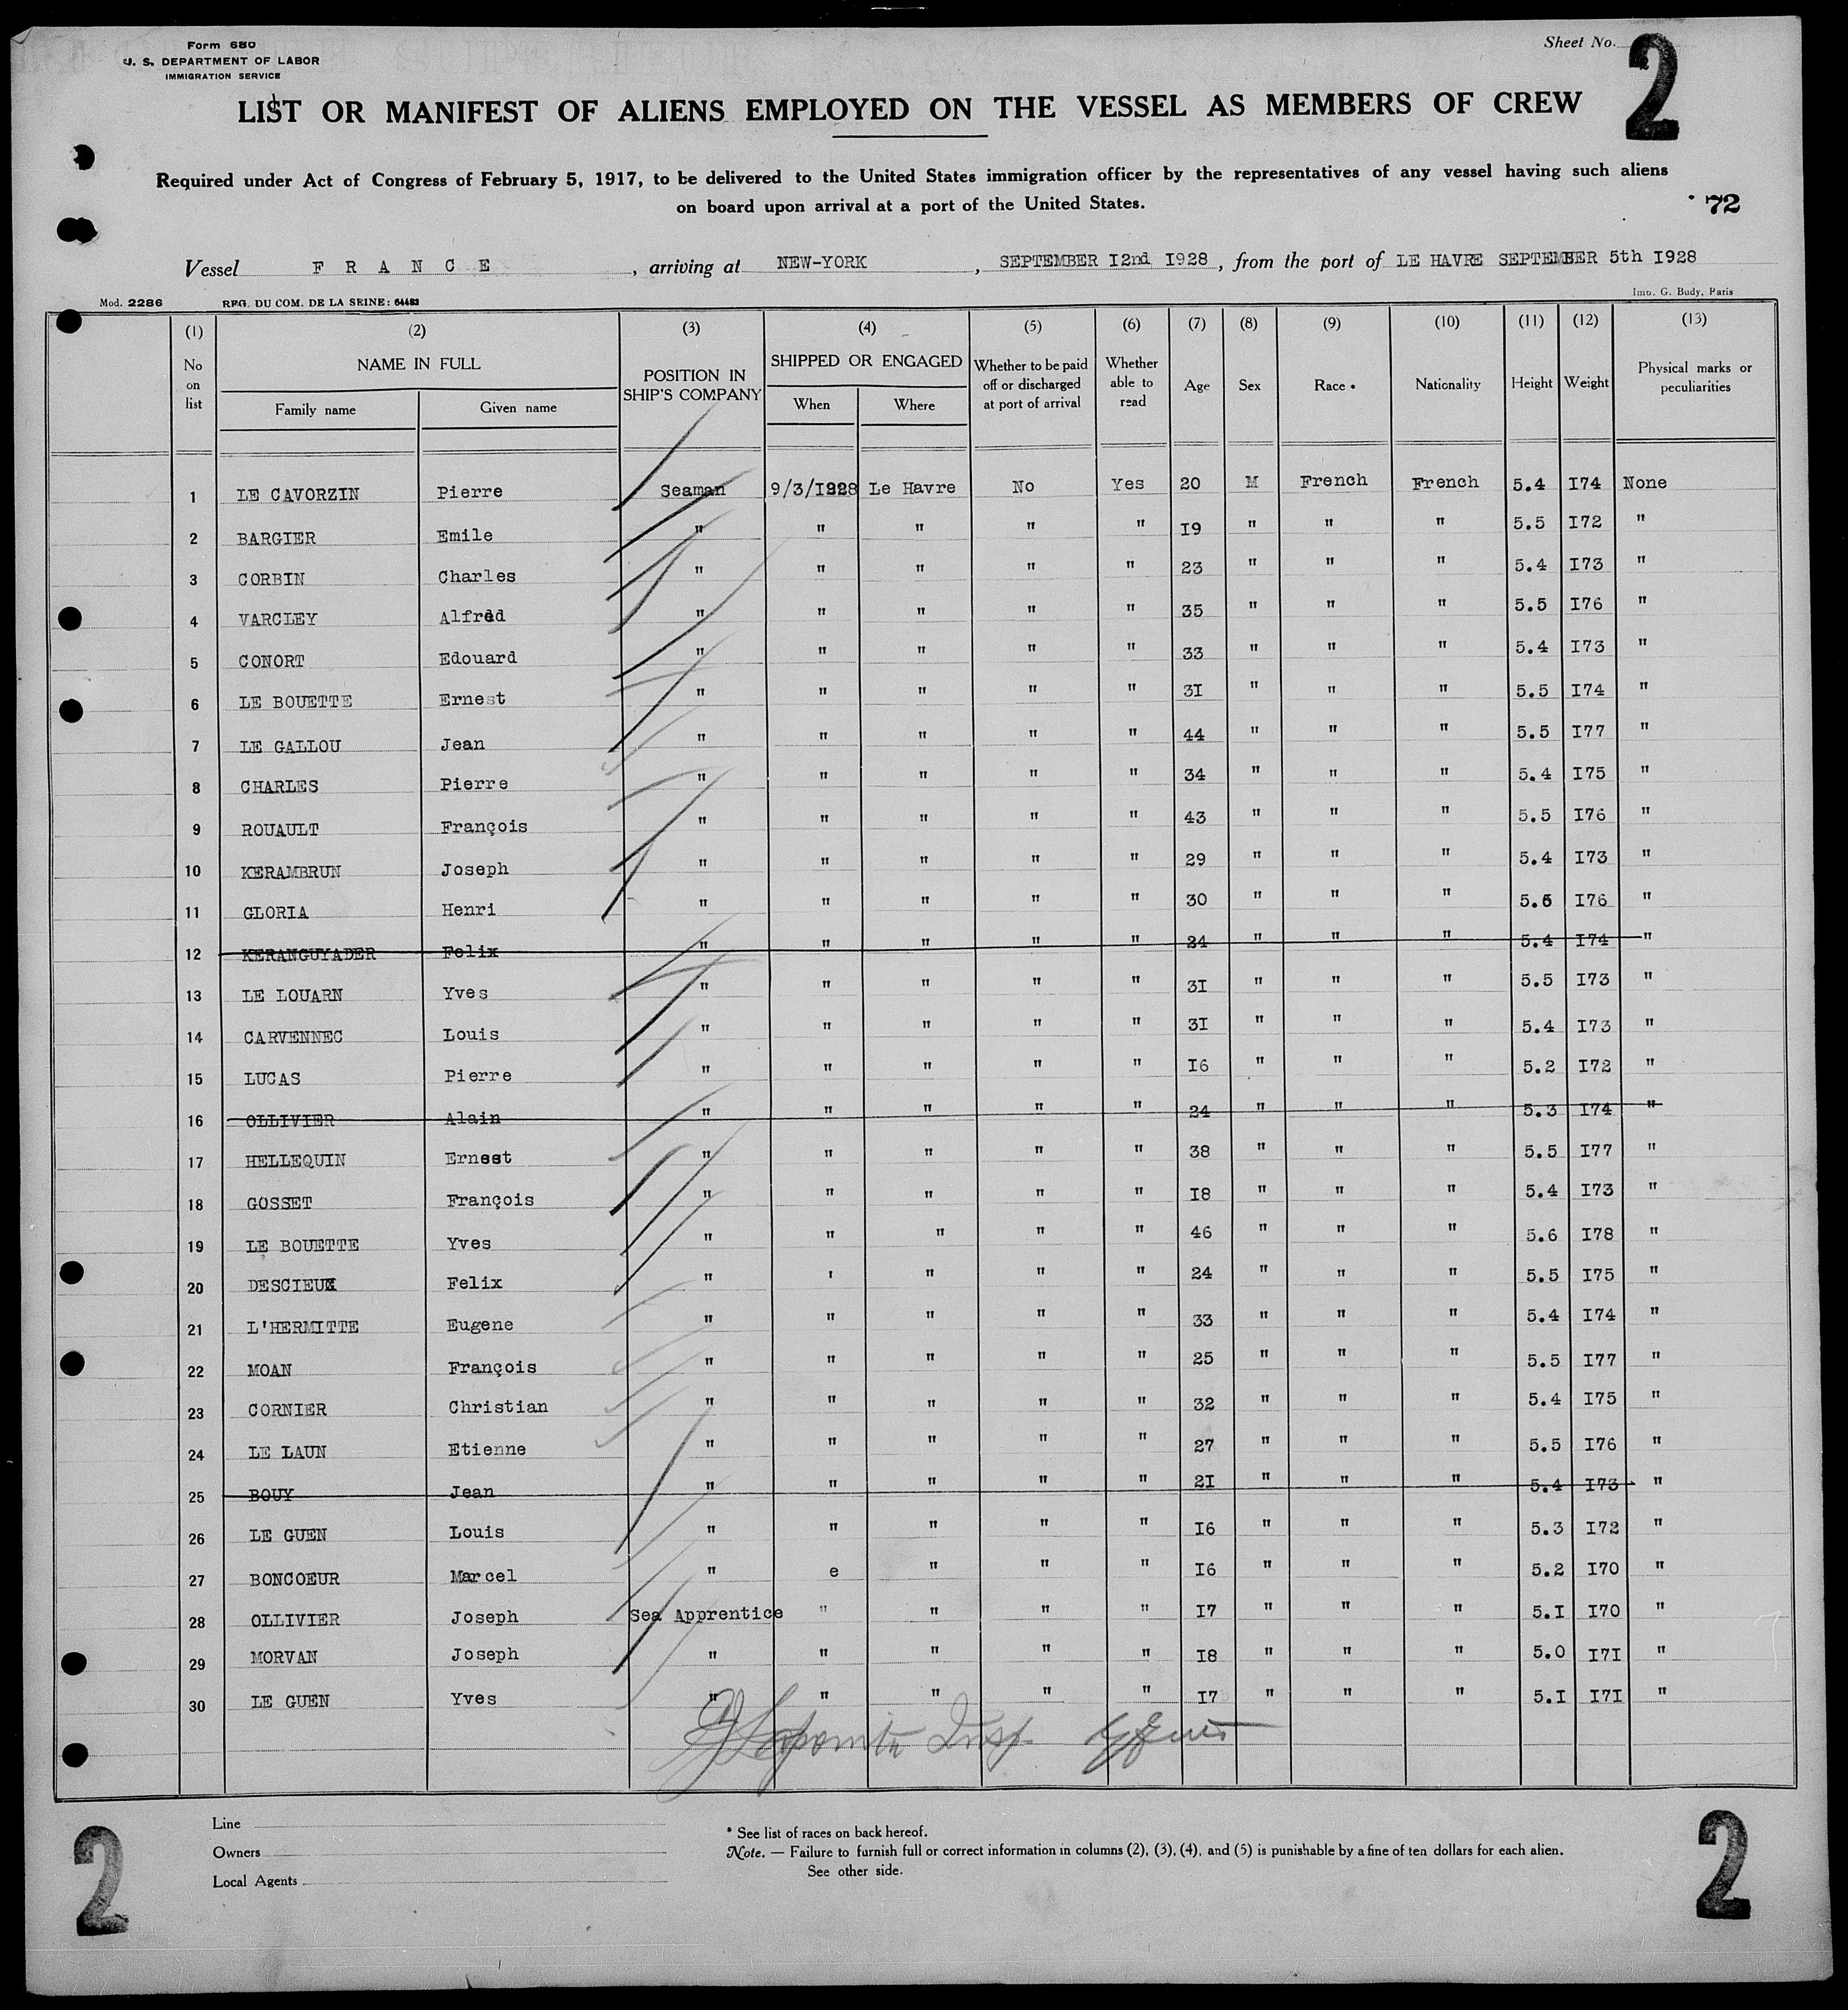 Form 680
U. S. DEPARTMENT OF LABOR
IMMIGRATION SERVICE
Sheet No. 2
2
LIST OR MANIFEST OF ALIENS EMPLOYED ON THE VESSEL AS MEMBERS OF CREW
Required under Act of Congress of February 5, 1917, to be delivered to the United States immigration officer by the representatives of any vessel having such aliens
on board upon arrival at a port of the United States.
72
Vessel F R A N C E , arriving at NEW-YORK , SEPTEMBER I2nd I928 , from the port of LE HAVRE SEPTEMBER 5th I928
Mod. 2286 REG. DU COM. DE LA SEINE: 64483 Imp. G. Budy, Paris
(1) (2) (3) (4) (5) (6) (7) (8) (9) (10) (11) (12) (13)
No on list NAME IN FULL Family name Given name POSITION IN SHIP'S COMPANY SHIPPED OR ENGAGED When Where Whether to be paid off or discharged at port of arrival Whether able to read Age Sex Race * Nationality Height Weight Physical marks or peculiarities
1 LE CAVORZIN Pierre Seaman 9/3/I928 Le Havre No Yes 20 M French French 5.4 I74 None
2 BARGIER Emile " " " " " I9 " " " 5.5 I72 "
3 CORBIN Charles " " " " " 23 " " " 5.4 I73 "
4 VARCLEY Alfred " " " " " 35 " " " 5.5 I76 "
5 CONORT Edouard " " " " " 33 " " " 5.4 I73 "
6 LE BOUETTE Ernest " " " " " 3I " " " 5.5 I74 "
7 LE GALLOU Jean " " " " " 44 " " " 5.5 I77 "
8 CHARLES Pierre " " " " " 34 " " " 5.4 I75 "
9 ROUAULT François " " " " " 43 " " " 5.5 I76 "
10 KERAMBRUN Joseph " " " " " 29 " " " 5.4 I73 "
11 GLORIA Henri " " " " " 30 " " " 5.6 I76 "
12 KERANGUYADER Felix " " " " " 24 " " " 5.4 I74 "
13 LE LOUARN Yves " " " " " 3I " " " 5.5 I73 "
14 CARVENNEC Louis " " " " " 3I " " " 5.4 I73 "
15 LUCAS Pierre " " " " " I6 " " " 5.2 I72 "
16 OLLIVIER Alain " " " " " 24 " " " 5.3 I74 "
17 HELLEQUIN Ernest " " " " " 38 " " " 5.5 I77 "
18 GOSSET François " " " " " I8 " " " 5.4 I73 "
19 LE BOUETTE Yves " " " " " 46 " " " 5.6 I78 "
20 DESCIEUX Felix " ' " " " 24 " " " 5.5 I75 "
21 L'HERMITTE Eugene " " " " " 33 " " " 5.4 I74 "
22 MOAN François " " " " " 25 " " " 5.5 I77 "
23 CORNIER Christian " " " " " 32 " " " 5.4 I75 "
24 LE LAUN Etienne " " " " " 27 " " " 5.5 I76 "
25 BOUY Jean " " " " " 2I " " " 5.4 I73 "
26 LE GUEN Louis " " " " " I6 " " " 5.3 I72 "
27 BONCOEUR Marcel " e " " " I6 " " " 5.2 I70 "
28 OLLIVIER Joseph Sea Apprentice " " " " I7 " " " 5.I I70 "
29 MORVAN Joseph " " " " " I8 " " " 5.0 I7I "
30 LE GUEN Yves " " " " " I7 " " " 5.I I7I "
Insp
Line
Owners
Local Agents
* See list of races on back hereof.
Note. — Failure to furnish full or correct information in columns (2), (3), (4), and (5) is punishable by a fine of ten dollars for each alien.
See other side.
2
2